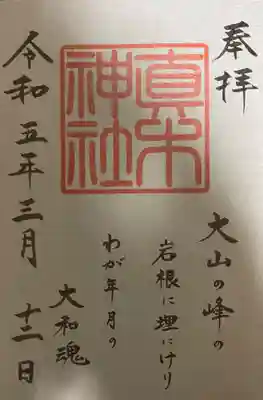 奉拝
大山の峰の
岩根に埋にけり
真木
神社
わが年月の
大和魂
令和五年三月十三日